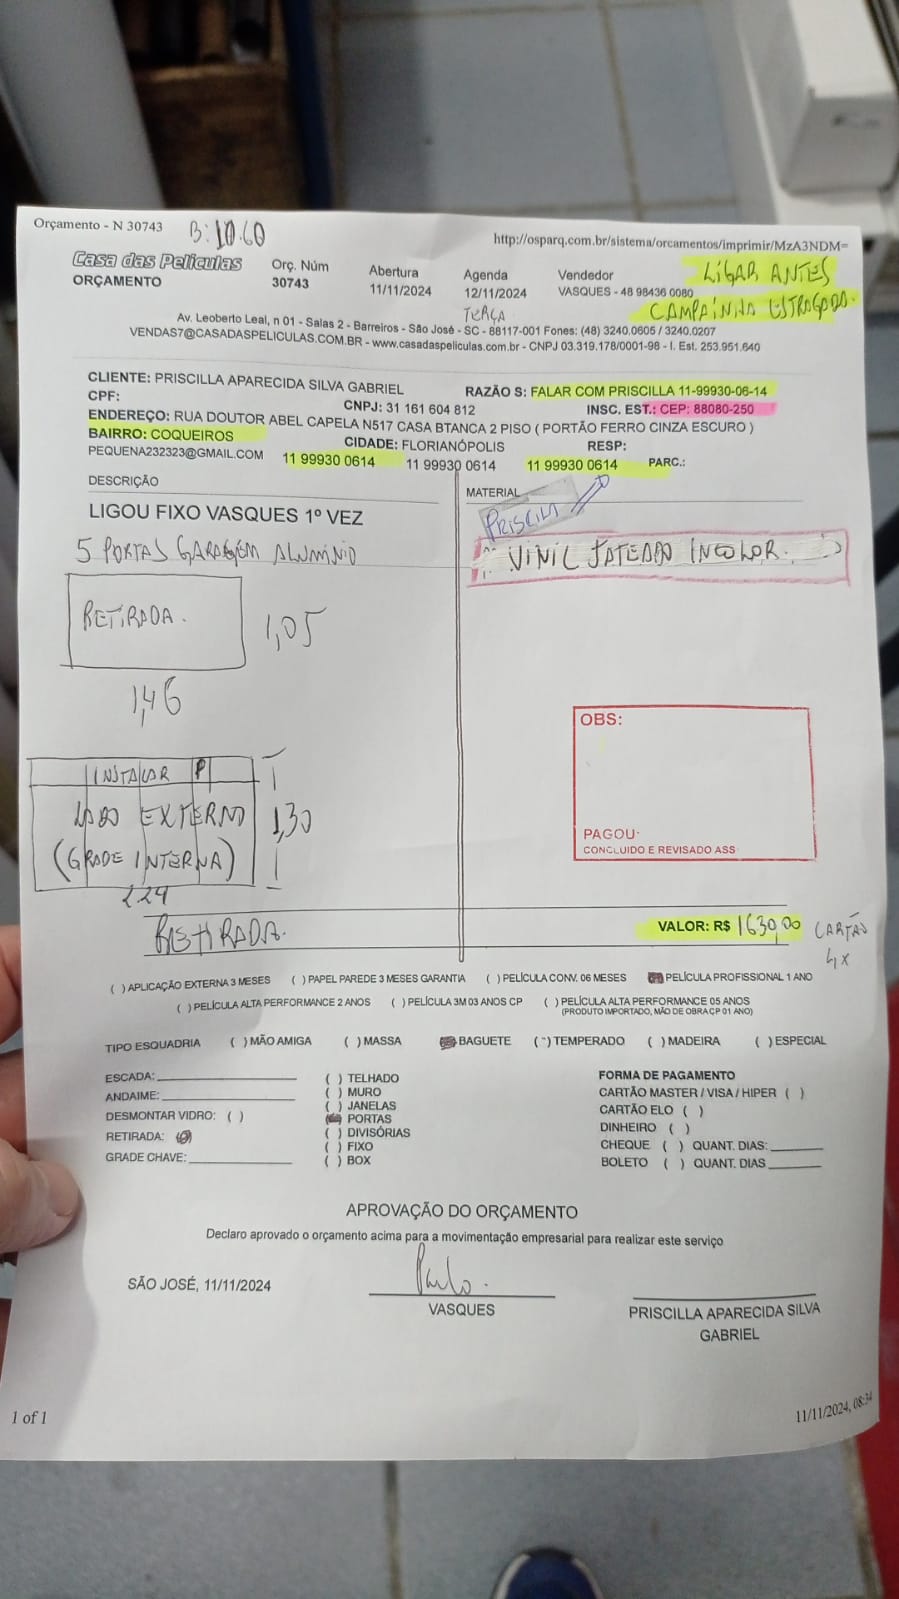 Orçamento - N 30743
B: 10.60
http://osparq.com.br/sistema/orcamentos/imprimir/MzA3NDM=
Casa das Películas
ORÇAMENTO
Orç. Núm
30743
Abertura
11/11/2024
Agenda
12/11/2024
TERÇA
Vendedor
VASQUES - 48 98436 0080
LIGAR ANTES
CAMPAINHA ESTRAGADA.
Av. Leoberto Leal, n 01 - Salas 2 - Barreiros - São José - SC - 88117-001 Fones: (48) 3240.0605 / 3240.0207
VENDAS7@CASADASPELICULAS.COM.BR - www.casadaspeliculas.com.br - CNPJ 03.319.178/0001-98 - I. Est. 253.951.640
CLIENTE: PRISCILLA APARECIDA SILVA GABRIEL RAZÃO S: FALAR COM PRISCILLA 11-99930-06-14
CPF: CNPJ: 31 161 604 812 INSC. EST.: CEP: 88080-250
ENDEREÇO: RUA DOUTOR ABEL CAPELA N517 CASA BTANCA 2 PISO ( PORTÃO FERRO CINZA ESCURO )
BAIRRO: COQUEIROS CIDADE: FLORIANÓPOLIS RESP:
PEQUENA232323@GMAIL.COM 11 99930 0614 11 99930 0614 11 99930 0614 PARC.:
DESCRIÇÃO
MATERIAL
LIGOU FIXO VASQUES 1º VEZ
PRISCILA
5 PORTAS GARAGEM ALUMÍNIO
VINIL JATEADO INCOLOR.
RETIRADA.
1,05
1,46
OBS:
INSTALAR P
LADO EXTERNO
1,30
(GRADE INTERNA)
PAGOU:
CONCLUIDO E REVISADO ASS
2.24
RETIRADA.
VALOR: R$ 1630,00 CARTÃO
4x
( ) APLICAÇÃO EXTERNA 3 MESES ( ) PAPEL PAREDE 3 MESES GARANTIA ( ) PELÍCULA CONV. 06 MESES PELÍCULA PROFISSIONAL 1 ANO
( ) PELÍCULA ALTA PERFORMANCE 2 ANOS ( ) PELÍCULA 3M 03 ANOS CP ( ) PELÍCULA ALTA PERFORMANCE 05 ANOS
(PRODUTO IMPORTADO, MÃO DE OBRA ÇP 01 ANO)
TIPO ESQUADRIA ( ) MÃO AMIGA ( ) MASSA BAGUETE ( ) TEMPERADO ( ) MADEIRA ( ) ESPECIAL
ESCADA:
ANDAIME:
DESMONTAR VIDRO: ( )
RETIRADA:
GRADE CHAVE:
( ) TELHADO
( ) MURO
( ) JANELAS
PORTAS
( ) DIVISÓRIAS
( ) FIXO
( ) BOX
FORMA DE PAGAMENTO
CARTÃO MASTER / VISA / HIPER ( )
CARTÃO ELO ( )
DINHEIRO ( )
CHEQUE ( ) QUANT. DIAS:
BOLETO ( ) QUANT. DIAS
APROVAÇÃO DO ORÇAMENTO
Declaro aprovado o orçamento acima para a movimentação empresarial para realizar este serviço
SÃO JOSÉ, 11/11/2024
Paulo.
VASQUES
PRISCILLA APARECIDA SILVA
GABRIEL
1 of 1
11/11/2024, 08:34